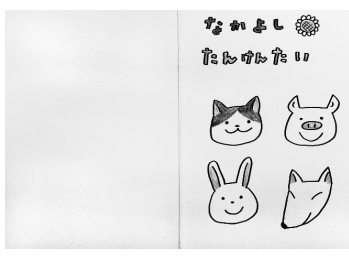 なかよし
たんけんたい